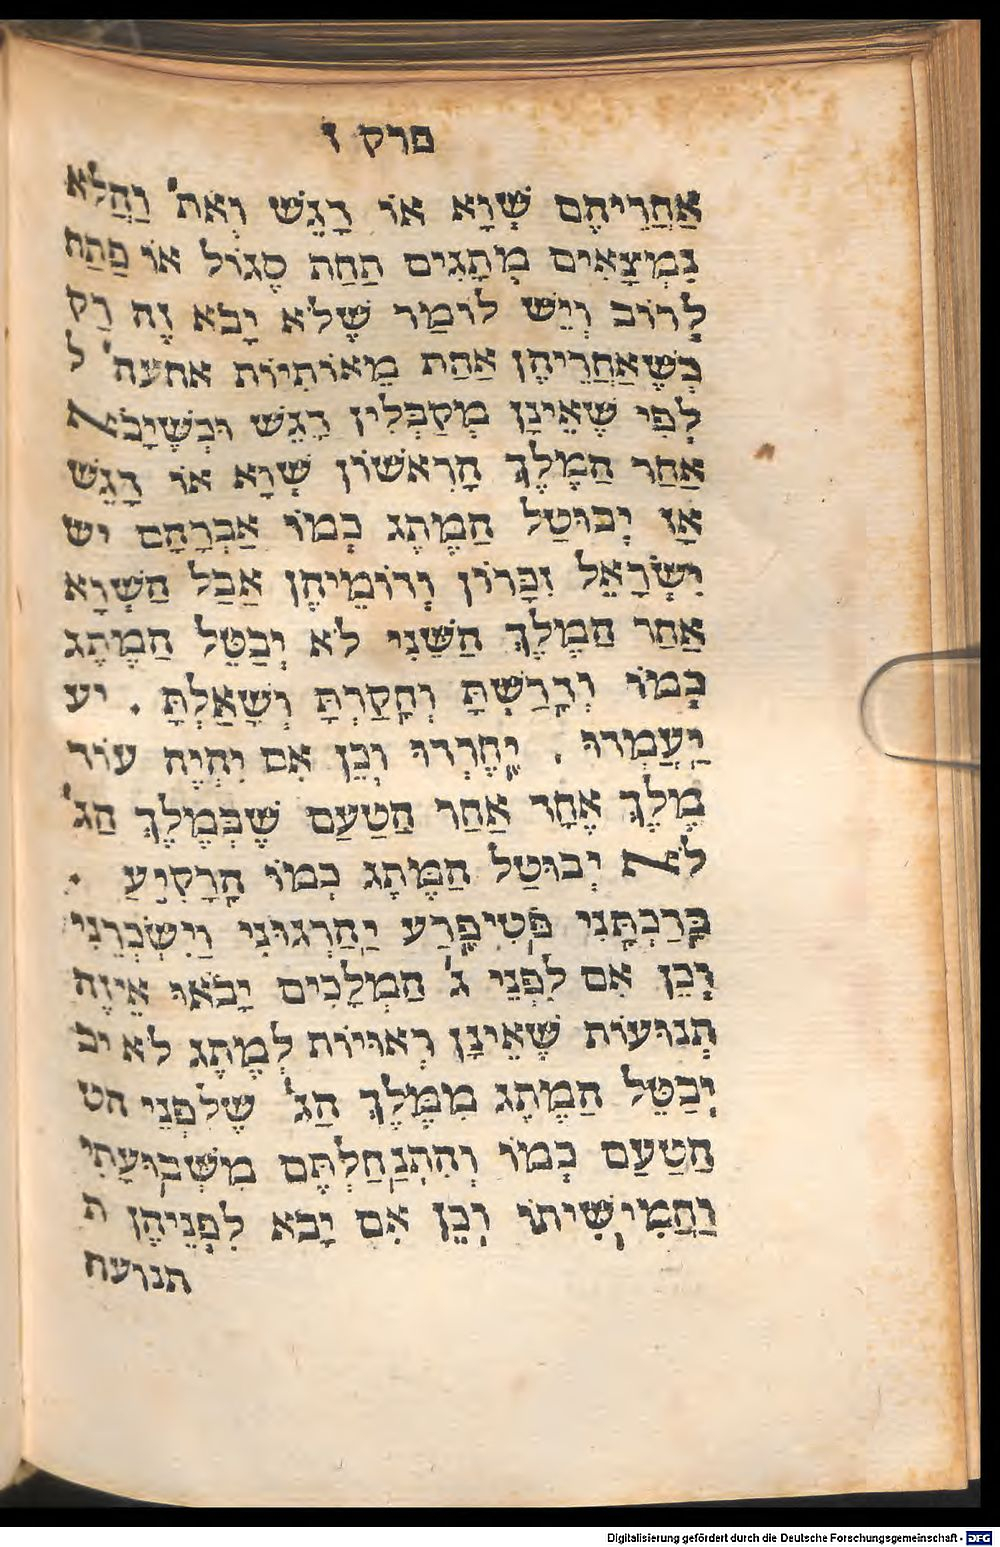 פרק ז
אַחֲרֵיהֶם שְׁוָא אוֹ דָגֵשׁ וְאִת' וַהֲלֹא
נִמְצָאִים מְתָגִים תַּחַת סֶגוֹל אוֹ פַּתַח
לָרוֹב וְיֵשׁ לוֹמַר שֶׁלֹּא יָבֹא זֶה רַק
כְּשֶׁאַחֲרֵיהֶן אַחַת מֵאוֹתִיוֹת אחעה' ל
לְפִי שֶׁאֵינָן מְקַבְּלִין דָגֵשׁ וּכְשֶׁיָבֹא
אַחַר הַמֶלֶךְ הָרִאשׁוֹן שְׁוָא אוֹ דָגֵשׁ
אָז יְבוּטַל הַמֶתֶג כְּמוֹ אַבְרָהָם יש
יִשְׂרָאֵל זִכָּרוֹן וְדוֹמֵיהֶן אֲבָל הַשְׁוָא
אַחַר הַמֶלֶךְ הַשֵׁנִי לֹא יְבַטֵל הַמֶתֶג
כְּמוֹ וְדָרַשְׁתָּ וְחָקַרְתָּ וְשָׁאַלְתָּ . יע
יַעֲמְדוּ . יֶחֶרְדוּ וְכֵן אִם יִהְיֶה עוֹד
מֶלֶךְ אֶחָד אַחַר הַטַעַם שֶׁבְּמֶלֶךְ הַג'
לֹא יְבוּטַל הַמֶתֶג כְּמוֹ הָרָקִיעַ .
בָּרַכְתָּנִי פּוֹטִיפֶרַע יַהַרְגוּנִי וַיִשְׂכְּרֵנִי
וְכֵן אִם לִפְנֵי ג' הַמְלָכִים יָבֹאוּ אֵיזֶה
תְנוּעוֹת שֶׁאֵינָן רְאוּיוֹת לְמֶתֶג לֹא יב
יְבַטֵל הַמֶתֶג מִמֶלֶךְ הַג' שֶׁלִפְנֵי הט
הַטַעַם כְּמוֹ וְהִתְנַחַלְתֶּם מִשְּׁבוּעָתִי
וַחֲמִישִׁיתוֹ וְכֵן אִם יָבֹא לִפְנֵיהֶן ת
תנועה
Digitalisierung gefördert durch die Deutsche Forschungsgemeinschaft - DFG